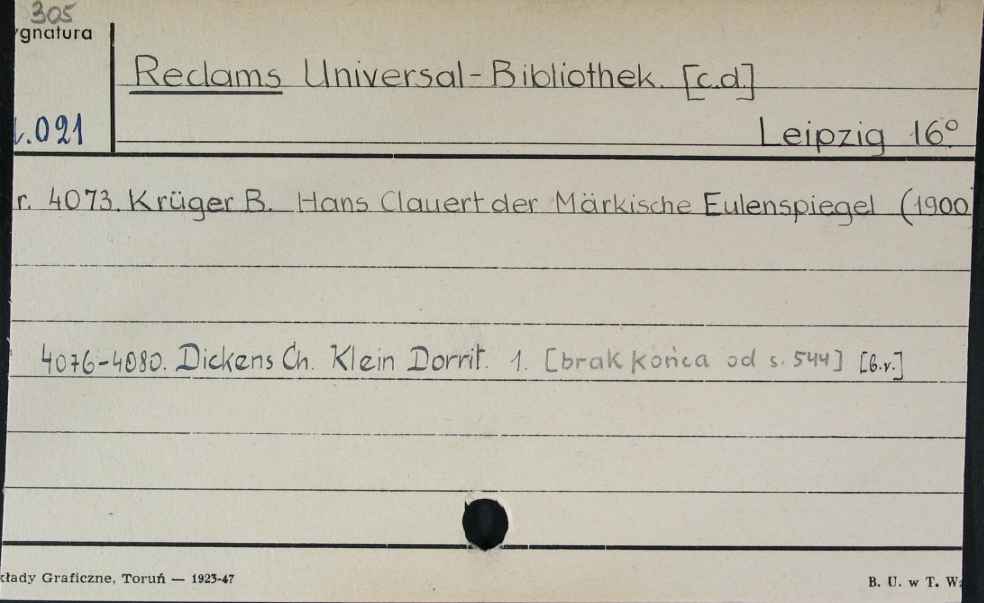 305
gnatura
Reclams Universal-Bibliothek. [c.d.]
.021
Leipzig 16°
r. 4073. Krüger B. Hans Clauert der Märkische Eulenspiegel (1900
4076-4080. Dickens Ch. Klein Dorrit. 1. [brak końca od s. 544] [b.r.]
kłady Graficzne, Toruń — 1923-47
B. U. w T. W